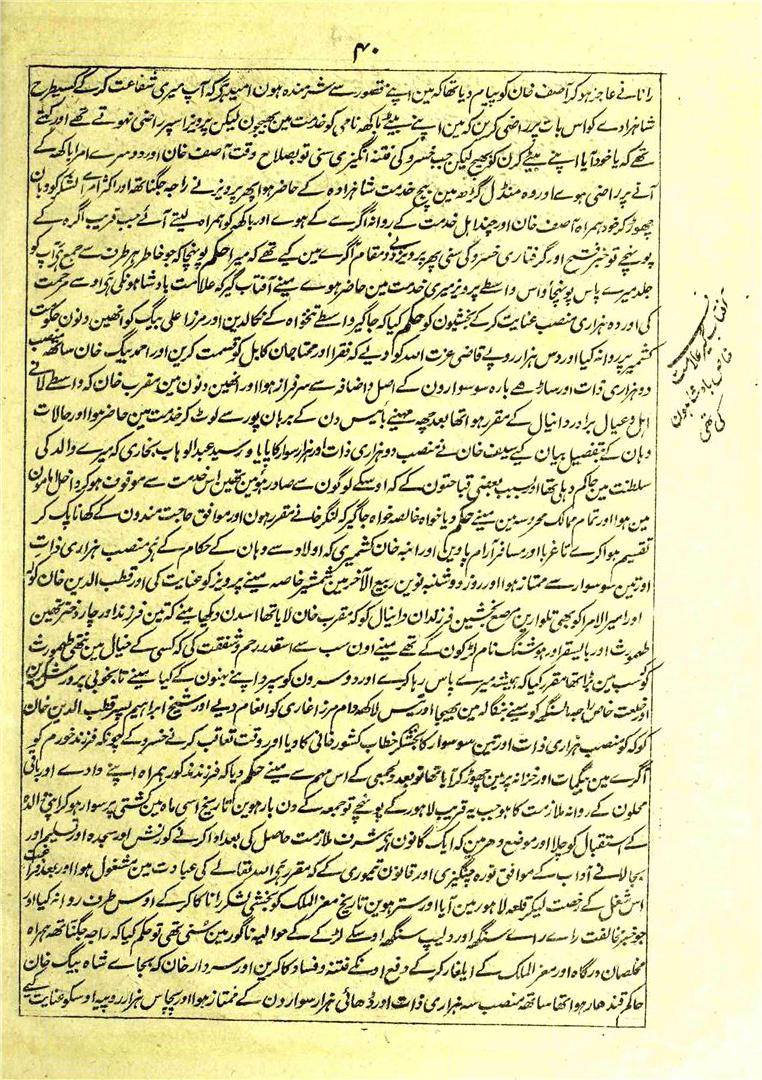 ۴۰
رانا نے عاجز ہو کر آصف خان کو پیام دیا تھا کہ مین اپنے قصور سے شرمندہ ہون امید ہے کہ آپ میری شفاعت کر کے کسیطرح
شاہزادے کو اس بات پر راضی کرین کہ مین اپنے بیٹے باکھہ نامی کو خدمت مین بھیجون لیکن پرویز اسپر راضی نہوتے تھے اور کہتے
تھے کہ یا خود آیا اپنے بیٹے کرن کو بھیج لیکن جب خسرو کی فتنہ انگیزی سنی تو بصلاح وقت آصف خان اور دوسرے امرا باکھہ کے
آنے پر راضی ہوے اور وہ منڈل گڑھ مین بیچ خدمت شاہزادہ کے حاضر ہوا پھر پرویز نے راجہ جگناتھ اور اکثر امراے لشکر کو وہان
چھوڑ کر خود ہمراہ آصف خان اور چند اہل خدمت کے روانہ آگرے کے ہوے اور باکھہ کو ہمراہ لیتے آئے جب قریب آگرہ کے
پونہچے تو خبر فتح اور گرفتاری خسرو کی سنی پھر پرویز نے دو مقام آگرے مین کیے تھے کہ میرا حکم پونہچا کہ جو خاطر ہر طرف سے جمع ہے آپ کو
جلد میرے پاس پونہچاؤ اس واسطے پرویز میری خدمت مین حاضر ہوے مینے آفتاب گیر کہ علامت بادشاہونکی ہے اوسے مرحمت
کی اور دہ ہزاری منصب عنایت کر کے بخشیون کو حکم کیا کہ جاگیر واسطے تنخواہ کے نکالدین اور مرزا علی بیگ کو انھین دنون حکومت
کشمیر پر روانہ کیا اور دس ہزار روپے قاضی عزت اللہ کو دیے کہ فقرا اور محتاجان کابل کو قسمت کرین اور احمد بیگ خان ساتھ منصب
دو ہزاری ذات اور ساڑھے بارہ سو سوارون کے اصل و اضافہ سے سرفراز ہوا اور انھین دنون مین مقرب خان کہ واسطے لانے
اہل و عیال برادر دانیال کے مقرر ہوا تھا بعد چھہ مہینے بائیس دن کے برہان پور سے لوٹ کر خدمت مین حاضر ہوا اور حالات
وہان کے بتفصیل بیان کیے سیف خان نے منصب دو ہزاری ذات اور ہزار سوار کا پایا و سید عبد الوہاب بخاری کہ میرے والد کی
سلطنت مین حاکم دہلی تھا اور بسبب بعضی قباحتون کے کہ اوسکے لوگون سے صادر ہوئین تھین اس خدمت سے موقوف ہو کر داخل
مین ہوا اور تمام ممالک محروسہ مین مینے حکم دیا خواہ خالصہ خواہ جاگیر کہ لنگر خانے مقرر ہون اور موافق حاجت مندون کے کھانا پک کر
تقسیم ہوا کرے تا غربا اور مسافر آرام پاوین اور انبہ خان کشمیری کہ اولاد سے وہان کے حکام کے ہے منصب ہزاری ذات
اور تین سو سوار سے ممتاز ہوا اور روز دو شنبہ نوین ربیع الآخر مین شمشیر خاصہ مینے پرویز کو عنایت کی اور قطب الدین خان کوکہ
اور امیر الامرا کو بھی تلوارین مرصع بخشین فرزندان دانیال کو کہ مقرب خان لایا تھا اسدن دیکھا مینے کہ تین فرزند اور چار دختر تھین
طہمورث اور بالیسنقر اور ہوشنگ نام لڑکون کے تھے مینے اون سب سے اسقدر رحم و شفقت کی کہ کسی کے خیال مین نتھی طہمورث
کو سب مین بڑا تھا مقرر کیا کہ ہمیشہ میرے پاس رہا کرے اور دوسرون کو سپرد اپنے بہنون کے کیا مینے تا بخوبی پرورش کرین
اور خلعت خاص راجہ مانسنگھ کو مینے بنگالہ مین بھیجا اور تیس لاکھ دام مرزا غازی کو انعام دیے اور شیخ ابراہیم پسر قطب الدین خان
کوکہ کو منصب ہزاری ذات اور تین سو سوار کا بخشکر خطاب کشور خانی کا دیا اور وقت تعاقب کرنے خسرو کے چونکہ فرزند خورم کو
آگرے مین بیگمات اور خزانہ پر مین چھوڑ کر آیا تھا تو بعد دلجمعی کے اس مہم سے مینے حکم دیا کہ فرزند مذکور ہمراہ اپنے دادے اور باقی
محلون کے روانہ ملازمت کا ہو جب یہ قریب لاہور کے پونہچے تو جمعہ کے دن بارہوین تاریخ اسی ماہ مین کشتی پر سوار ہو کر اپنی والدہ
کے استقبال کو چلا اور موضع دھر مین کہ ایک گانون ہے شرف ملازمت حاصل کی بعد ادا کرنے کورنش اور سجدہ اور تسلیم اور
بجا لانے آداب کے موافق تورہ چنگیزی اور قانون تیموری کے کہ مقرر ہے اللہ تعالے کی عبادت مین مشغول ہوا اور بعد فراغت
اس شغل کے رخصت لیکر قلعہ لاہور مین آیا اور سترہوین تاریخ معز الملک کو بخشی لشکر رانا کا کر کے اوس طرف روانہ کیا اور
جو خبر مخالفت راے راے سنگھ اور دلیپ سنگھ اوسکے لڑکے کے حوالیہ ناگور مین سنی تھی تو حکم کیا کہ راجہ جگناتھ ہمراہ
مخلصان درگاہ اور معز الملک کے ایلغار کر کے دفع اونکے فتنہ و فساد کا کرین اور سردار خان کہ بجاے شاہ بیگ خان
حاکم قندھار ہوا تھا ساتھ منصب سہ ہزاری ذات اور ڈھائی ہزار سوارون کے ممتاز ہوا اور پچاس ہزار روپیہ اوسکو عنایت کیے
آفتاب گیر علامت
خاص بادشاہون
کی تھی